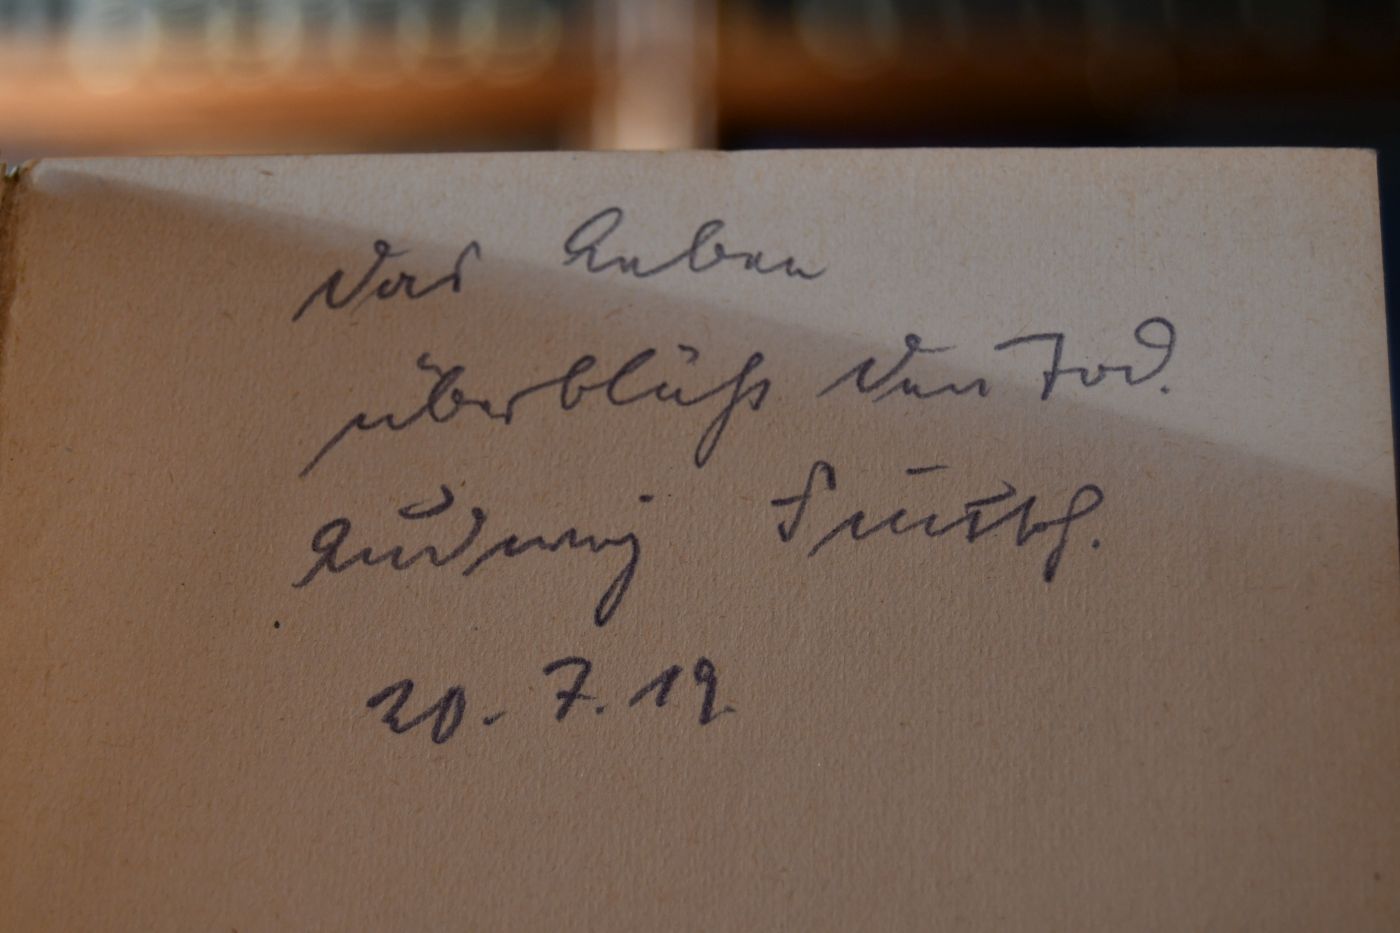 Das Leben
überblüht den Tod.
Ludwig Finckh.
20. 7. 19.